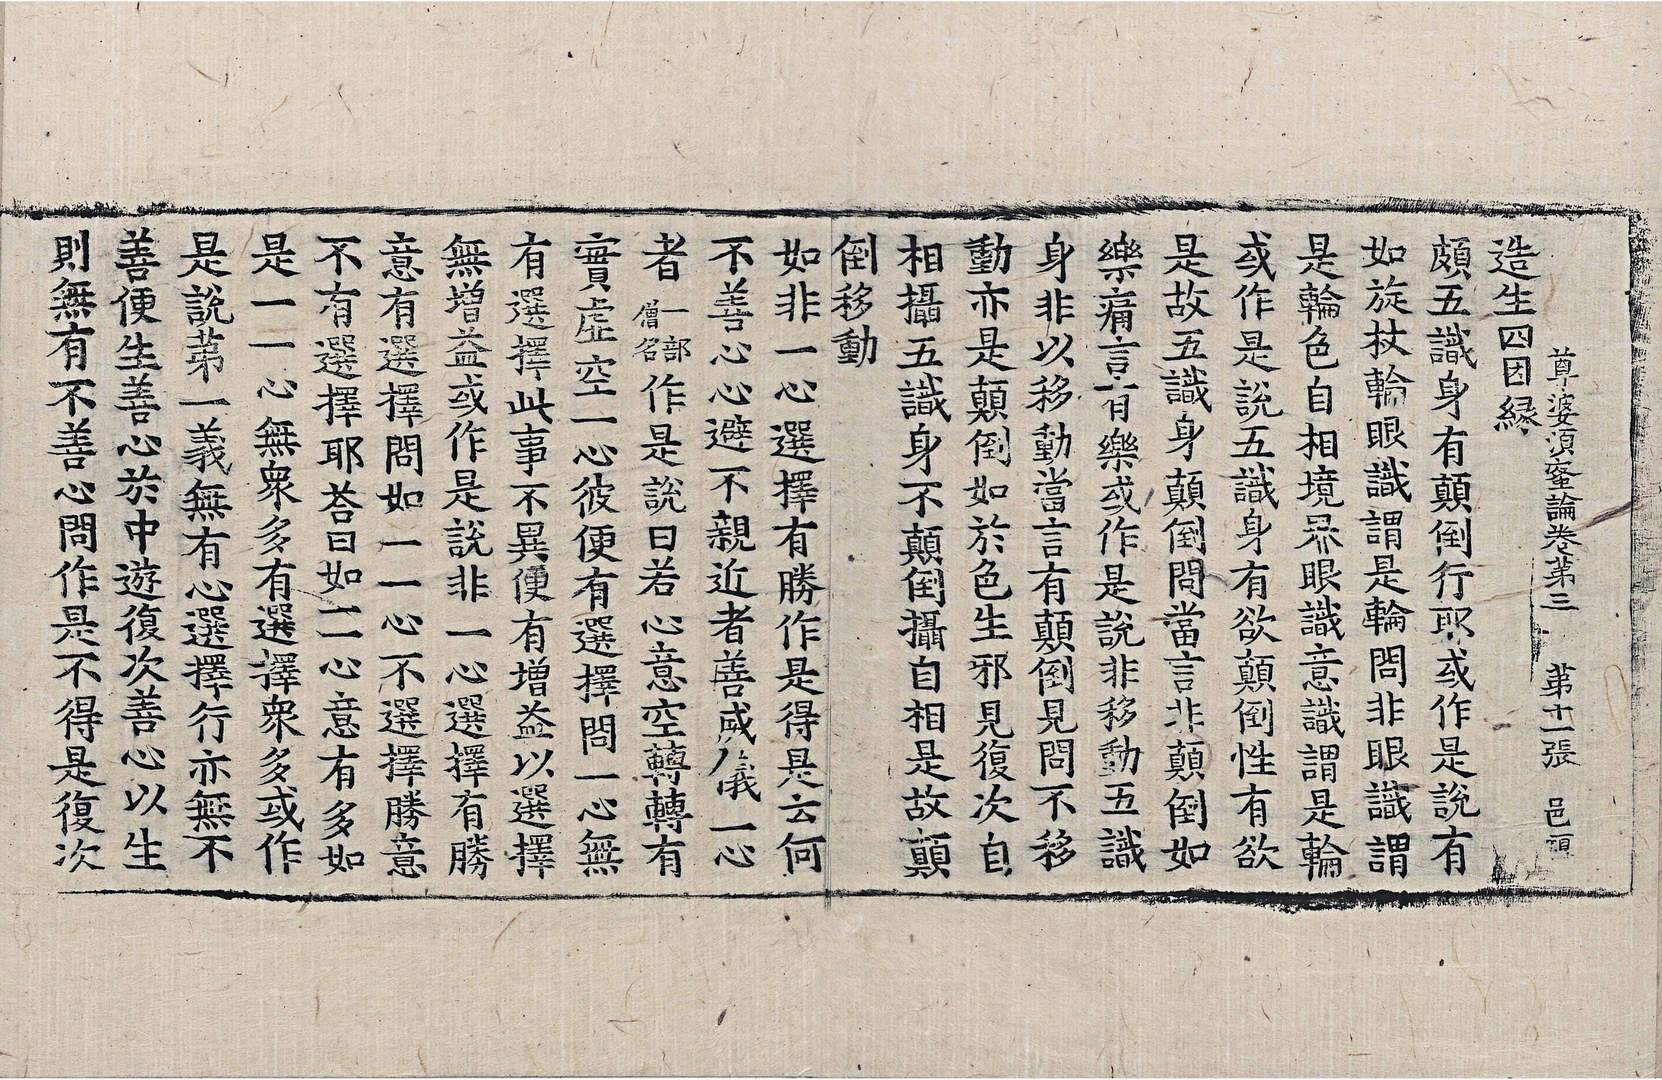 尊婆須蜜論卷第三　第十一張　邑
造生四因緣
頗五識身有顛倒行耶或作是說有
如旋杖輪眼識謂是輪問非眼識謂
是輪色自相境界眼識意識謂是輪
或作是說五識身有欲顛倒性有欲
是故五識身顛倒問當言非顛倒如
樂痛言有樂或作是說非移動五識
身非以移動當言有顛倒見問不移
動亦是顛倒如於色生邪見復次自
相攝五識身不顛倒攝自相是故顛
倒移動
如非一心選擇有勝作是得是云何
不善心心避不親近者善威儀一心
者一部僧名作是說曰若心意空轉轉有
實虛空一心彼便有選擇問一心無
有選擇此事不異便有增益以選擇
無增益或作是說非一心選擇有勝
意有選擇問如一一心不選擇勝意
不有選擇耶荅曰如一一心意有多如
是一一心無衆多有選擇衆多或作
是說第一義無有心選擇行亦無不
善便生善心於中遊復次善心以生
則無有不善心問作是不得是復次